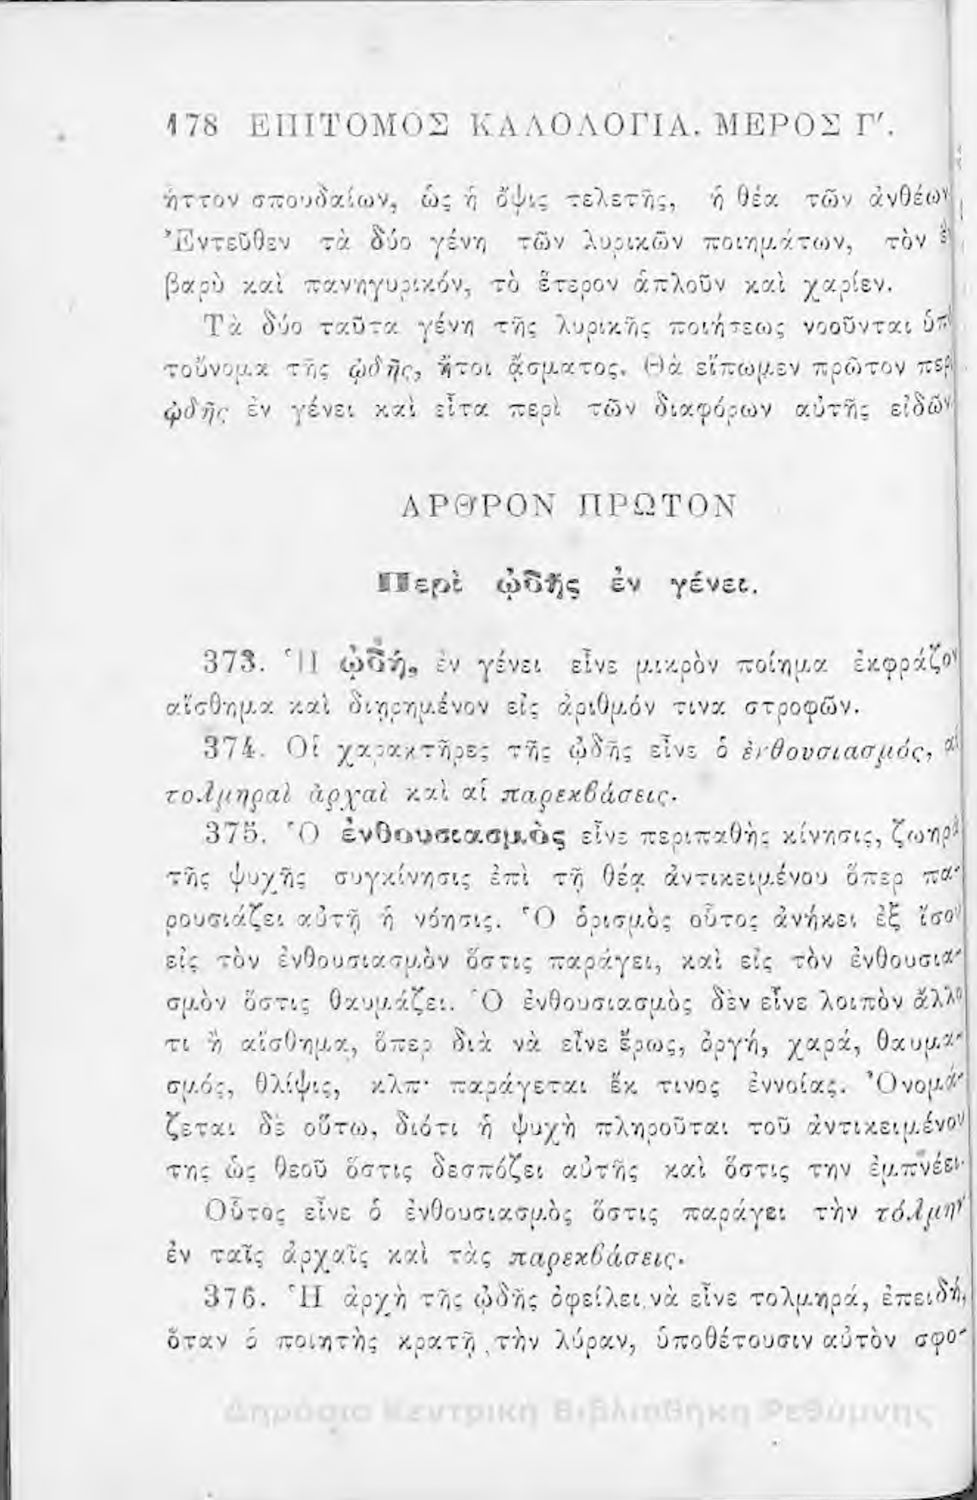 178 ΕΠΙΤΟΜΟΣ ΚΑΛΟΛΟΓΙΑ. ΜΕΡΟΣ Γ′.
ἧττον σπουδαίων, ὡς ἡ ὄψις τελετῆς, ἡ θέα τῶν ἀνθέων
Ἐντεῦθεν τὰ δύο γένη τῶν λυρικῶν ποιημάτων, τὸν ἓν
βαρὺ καὶ πανηγυρικόν, τὸ ἕτερον ἁπλοῦν καὶ χαρίεν.
Τὰ δύο ταῦτα γένη τῆς λυρικῆς ποιήσεως νοοῦνται ὑπὸ
τοὔνομα τῆς ᾠδῆς, ἤτοι ᾄσματος. Θὰ εἴπωμεν πρῶτον περὶ
ᾠδῆς ἐν γένει καὶ εἶτα περὶ τῶν διαφόρων αὐτῆς εἰδῶν
ΑΡΘΡΟΝ ΠΡΩΤΟΝ
Περὶ ᾠδῆς ἐν γένει.
373. Ἡ ᾠδή, ἐν γένει εἶνε μικρὸν ποίημα ἐκφράζον
αἴσθημα καὶ διῃρημένον εἰς ἀριθμόν τινα στροφῶν.
374. Οἱ χαρακτῆρες τῆς ᾠδῆς εἶνε ὁ ἐνθουσιασμός, αἱ
τολμηραὶ ἀρχαὶ καὶ αἱ παρεκβάσεις.
375. Ὁ ἐνθουσιασμὸς εἶνε περιπαθὴς κίνησις, ζωηρὰ
τῆς ψυχῆς συγκίνησις ἐπὶ τῇ θέᾳ ἀντικειμένου ὅπερ πα-
ρουσιάζει αὐτῇ ἡ νόησις. Ὁ ὁρισμὸς οὗτος ἀνήκει ἐξ ἴσου
εἰς τὸν ἐνθουσιασμὸν ὅστις παράγει, καὶ εἰς τὸν ἐνθουσια-
σμὸν ὅστις θαυμάζει. Ὁ ἐνθουσιασμὸς δὲν εἶνε λοιπὸν ἄλλο
τι ἢ αἴσθημα, ὅπερ διὰ νὰ εἶνε ἔρως, ὀργή, χαρά, θαυμα-
σμός, θλίψις, κλπ· παράγεται ἔκ τινος ἐννοίας. Ὀνομά-
ζεται δὲ οὕτω, διότι ἡ ψυχὴ πληροῦται τοῦ ἀντικειμένου
της ὡς θεοῦ ὅστις δεσπόζει αὐτῆς καὶ ὅστις την ἐμπνέει.
Οὗτος εἶνε ὁ ἐνθουσιασμὸς ὅστις παράγει τὴν τόλμην
ἐν ταῖς ἀρχαῖς καὶ τὰς παρεκβάσεις.
376. Ἡ ἀρχὴ τῆς ᾠδῆς ὀφείλει νὰ εἶνε τολμηρά, ἐπειδή,
ὅταν ὁ ποιητὴς κρατῇ τὴν λύραν, ὑποθέτουσιν αὐτὸν σφο-
Δημόσια Κεντρική Βιβλιοθήκη Ρεθύμνης